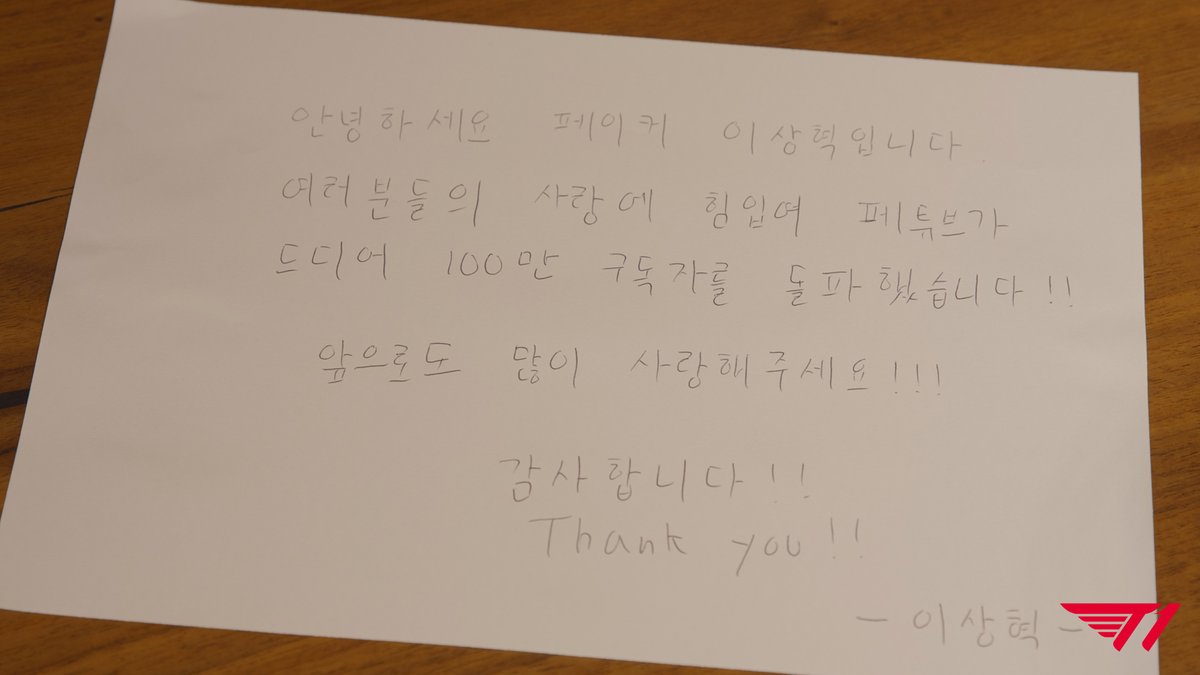 안녕하세요 페이커 이상혁입니다
여러분들의 사랑에 힘입어 페튜브가
드디어 100만 구독자를 돌파했습니다!!
앞으로도 많이 사랑해주세요!!!
감사합니다!!
Thank you!!
- 이상혁 -
T1